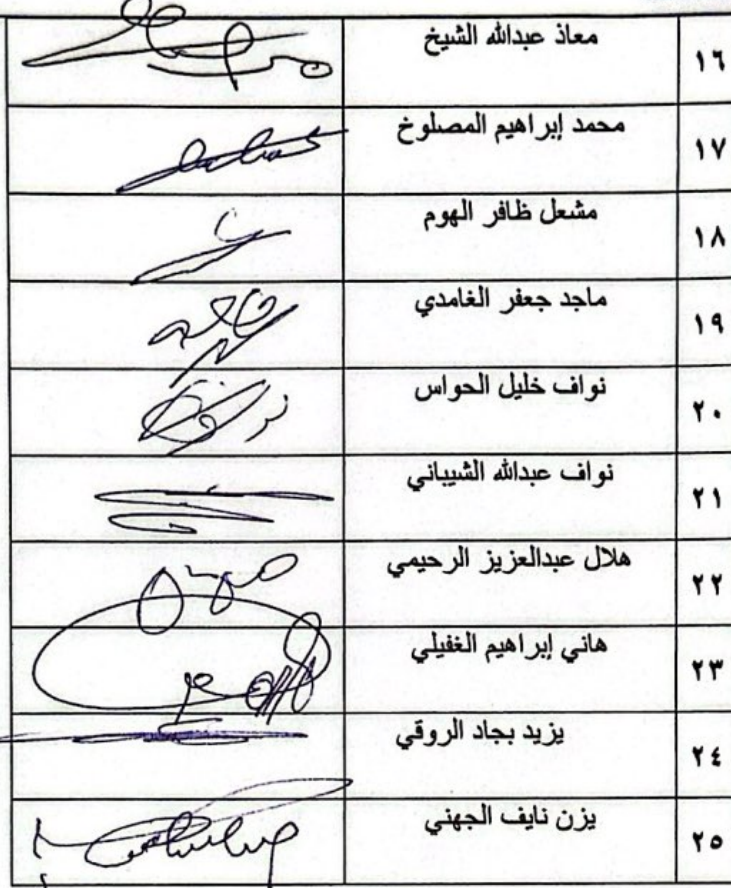 ١٦ معاذ عبدالله الشيخ
١٧ محمد إبراهيم المصلوخ
١٨ مشعل ظافر الهوم
١٩ ماجد جعفر الغامدي
٢٠ نواف خليل الحواس
٢١ نواف عبدالله الشيباني
٢٢ هلال عبدالعزيز الرحيمي
٢٣ هاني إبراهيم الغفيلي
٢٤ يزيد بجاد الروقي
٢٥ يزن نايف الجهني